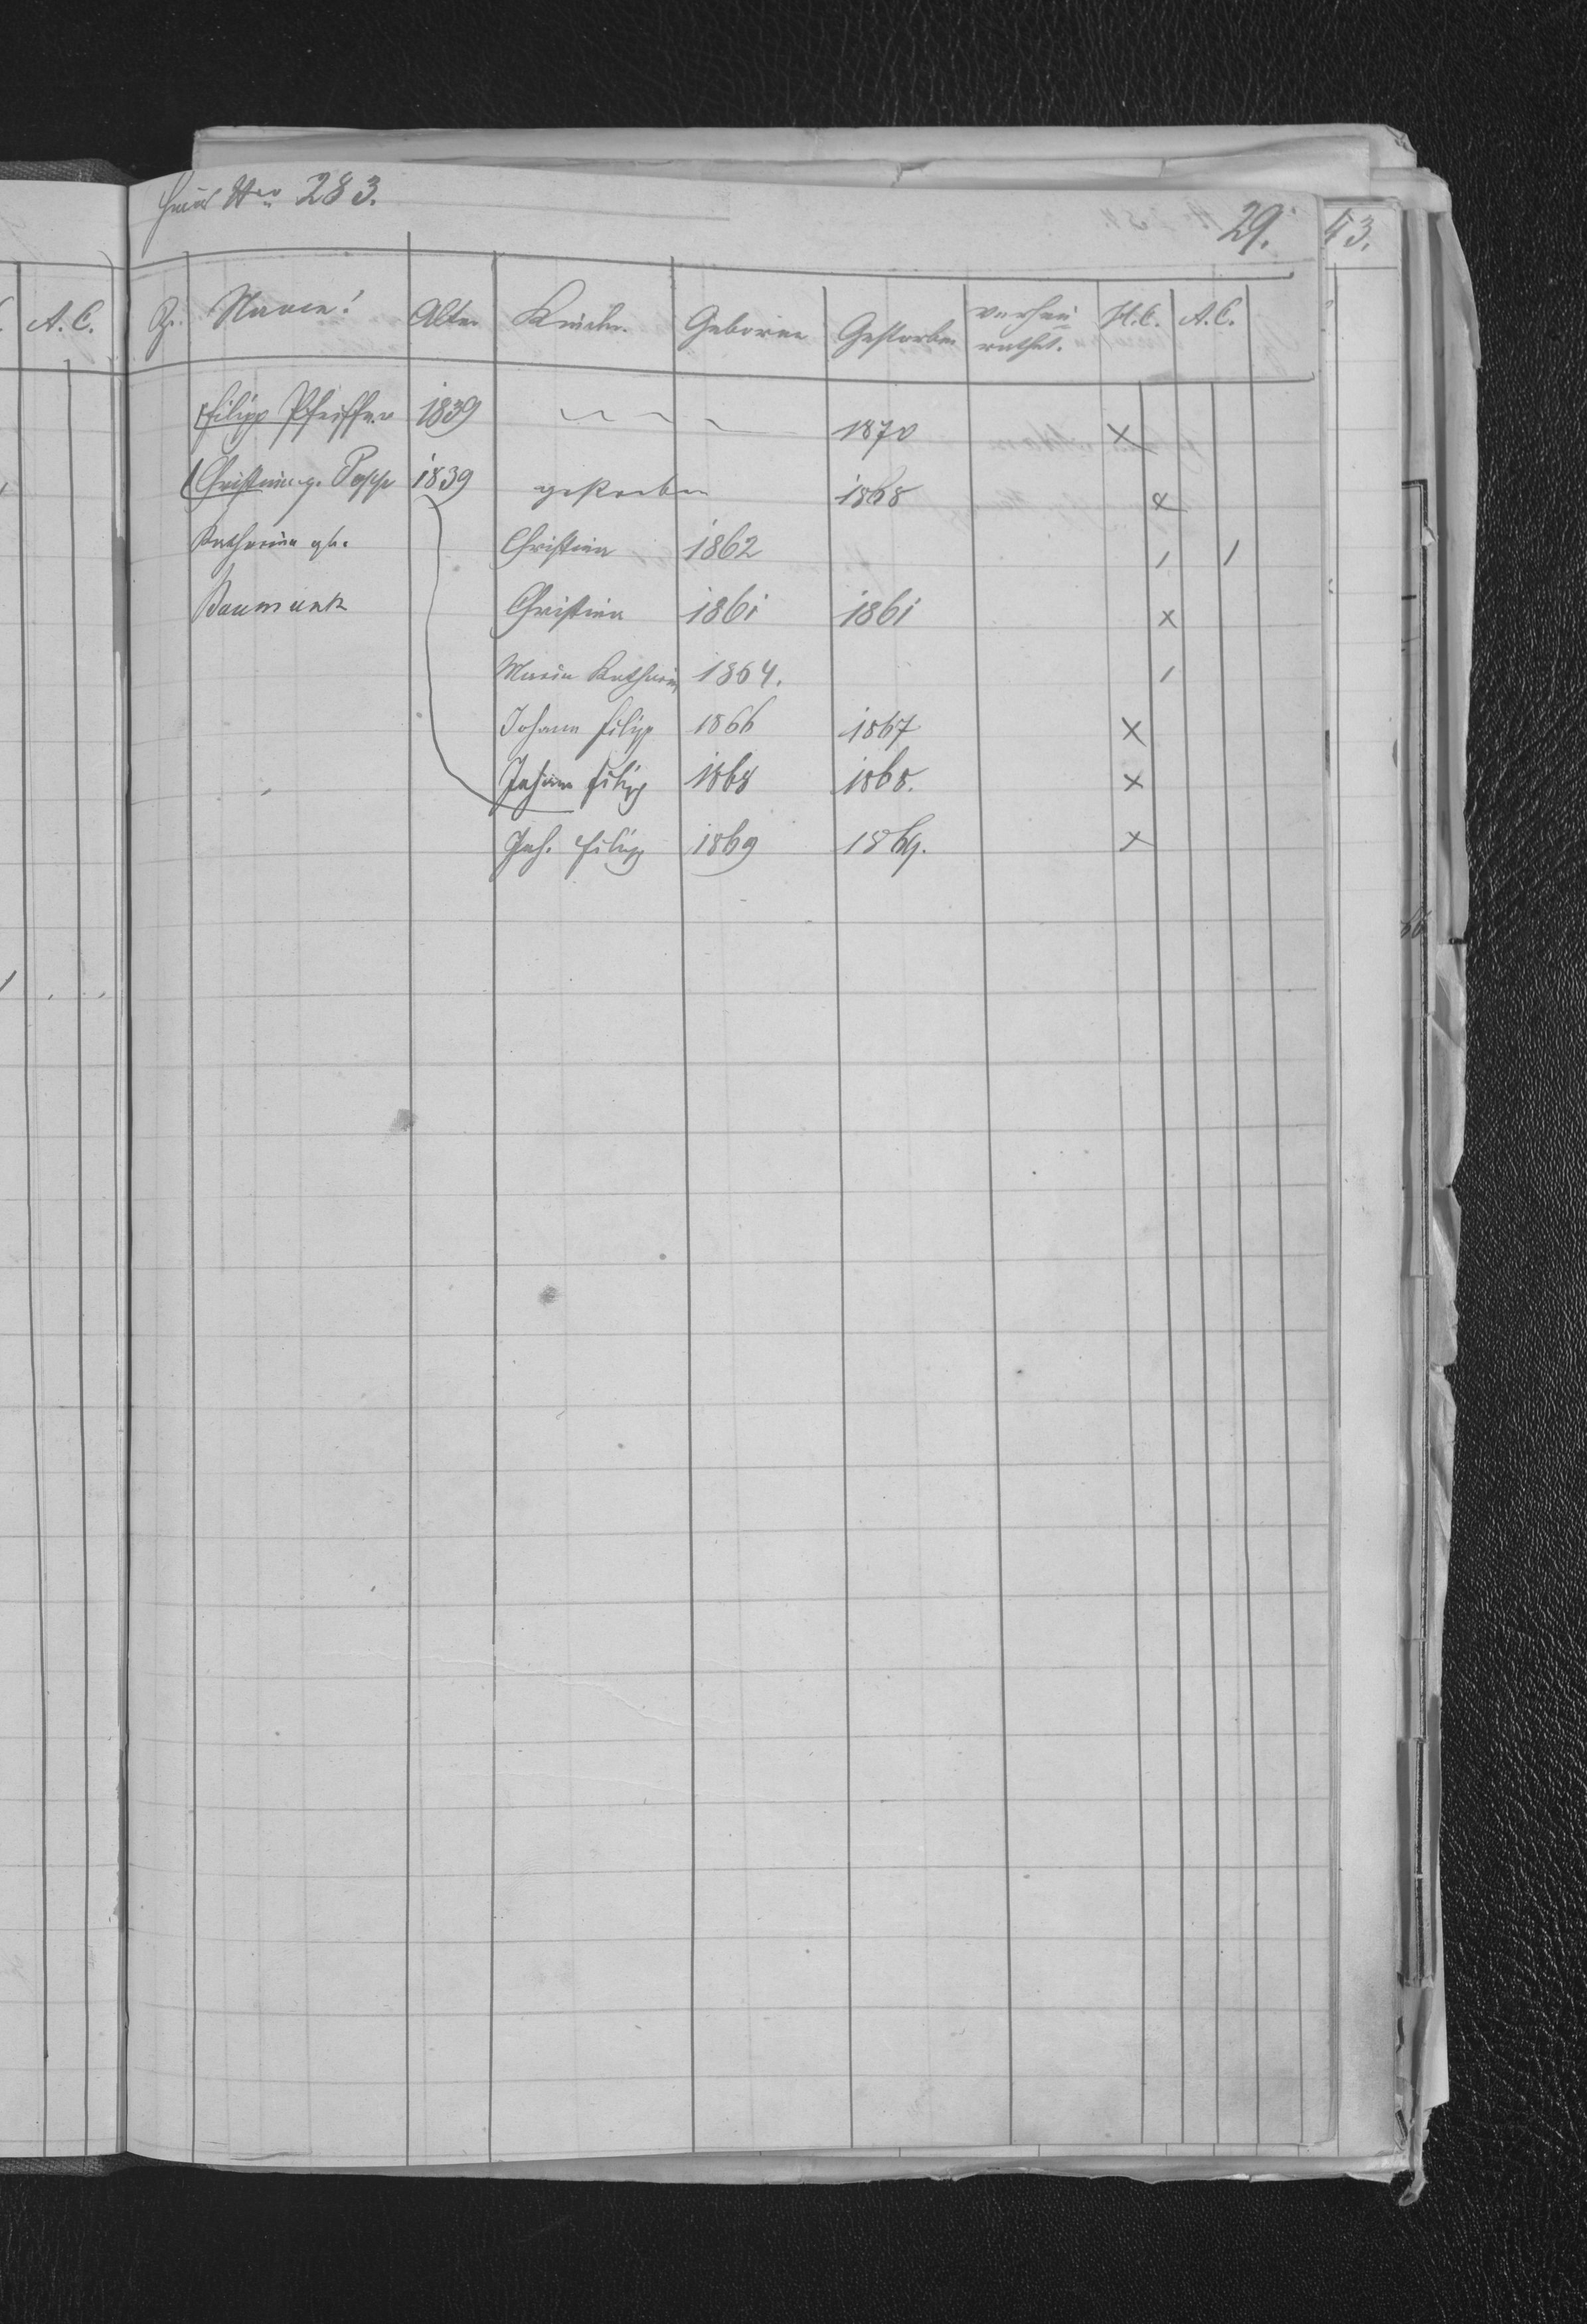 Haus Nro 283.
29.
43.
A. C.
Nr. Namen! Alter Kinder. Geboren Gestorben verheirathet. H. C. A. C.
Filipp Pfeiffer 1839 1870 x
Christina g. Popp 1839 gestorben 1868 x
Katharina gb. Christina 1862 / /
Baumunk Christina 1861 1861 x
Maria Katharina 1864. /
Johann Filipp 1866 1867 x
Johann Filipp 1868 1868. x
Joh. Filipp 1869 1869. x